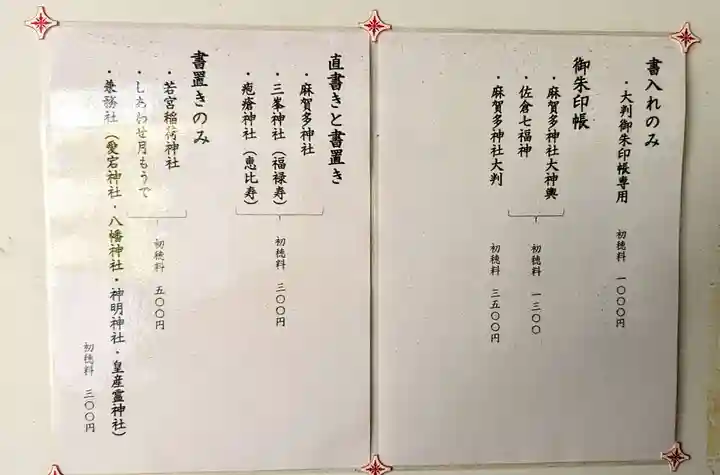 書入れのみ
・大判御朱印帳専用
初穂料 一〇〇〇円
御朱印帳
・麻賀多神社大神輿
・佐倉七福神
初穂料 一三〇〇
・麻賀多神社大判
初穂料 三五〇〇円
直書きと書置き
・麻賀多神社
・三峯神社（福禄寿）
・疱瘡神社（恵比寿）
初穂料 三〇〇円
書置きのみ
・若宮稲荷神社
・しあわせ月もうで
初穂料 五〇〇円
・兼務社（愛宕神社・八幡神社・神明神社・皇産霊神社）
初穂料 三〇〇円